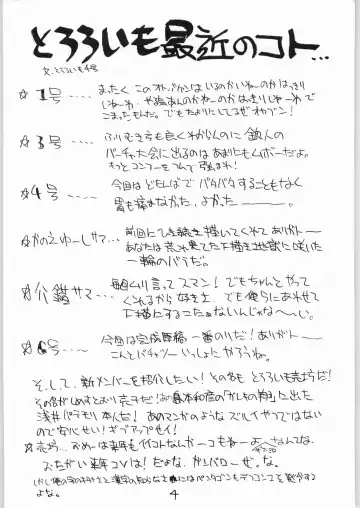 とろろいも最近のコト...
文、とろろいも4号
☆1号‥‥ まったく このオトバァンはいるのかいねーのかはっきり
しねーわ、やる気あんのかねーのかはっきりしねーわで
こまったもんだ。でもたよりにしてるぜオカブン!
☆3号‥‥ ふりむき方も良くわからんのに 鉄人の
バーチャ大会に出るのはあまりにもムボーだよ。
もっとコンフーをつんで強まれ!
☆4号‥‥ 今回はどたんばで バタバタすることもなく
胃も痛まなかった、よかった――。
☆かのえゆーしサマ‥‥ 前回にひき続き描いてくれてありがとー
あなたは荒れ果てた下描き地獄に咲いた
一輪のバラだ。
☆介錯サマ‥‥ 毎回ムリ言ってスマン!でもちゃんとやって
くれるから好きさ、でも俺らにあわせて
下描きにするこたぁないんじゃな〜い。
☆6号‥‥ 今回は完成原稿一番のりだ!ありがとー
こんどバーチャツーいっしょにやろうね。
そして、新メンバーを紹介したい!その名も とろろいも売坊だ!
その名がしめすとおり売子だ!お島本和彦の「かしもの翔」に出た
浅井パラモリ本人だ!あのマンガのような ズルイやつではない
ので安心せい!ギブアップせイ!
☆売坊‥‥おめーは来年もイイコトなんかーつもねーよー なんてな。
おたがい来年コソは!だよな、ガンバローぜ。な。
よな。
4